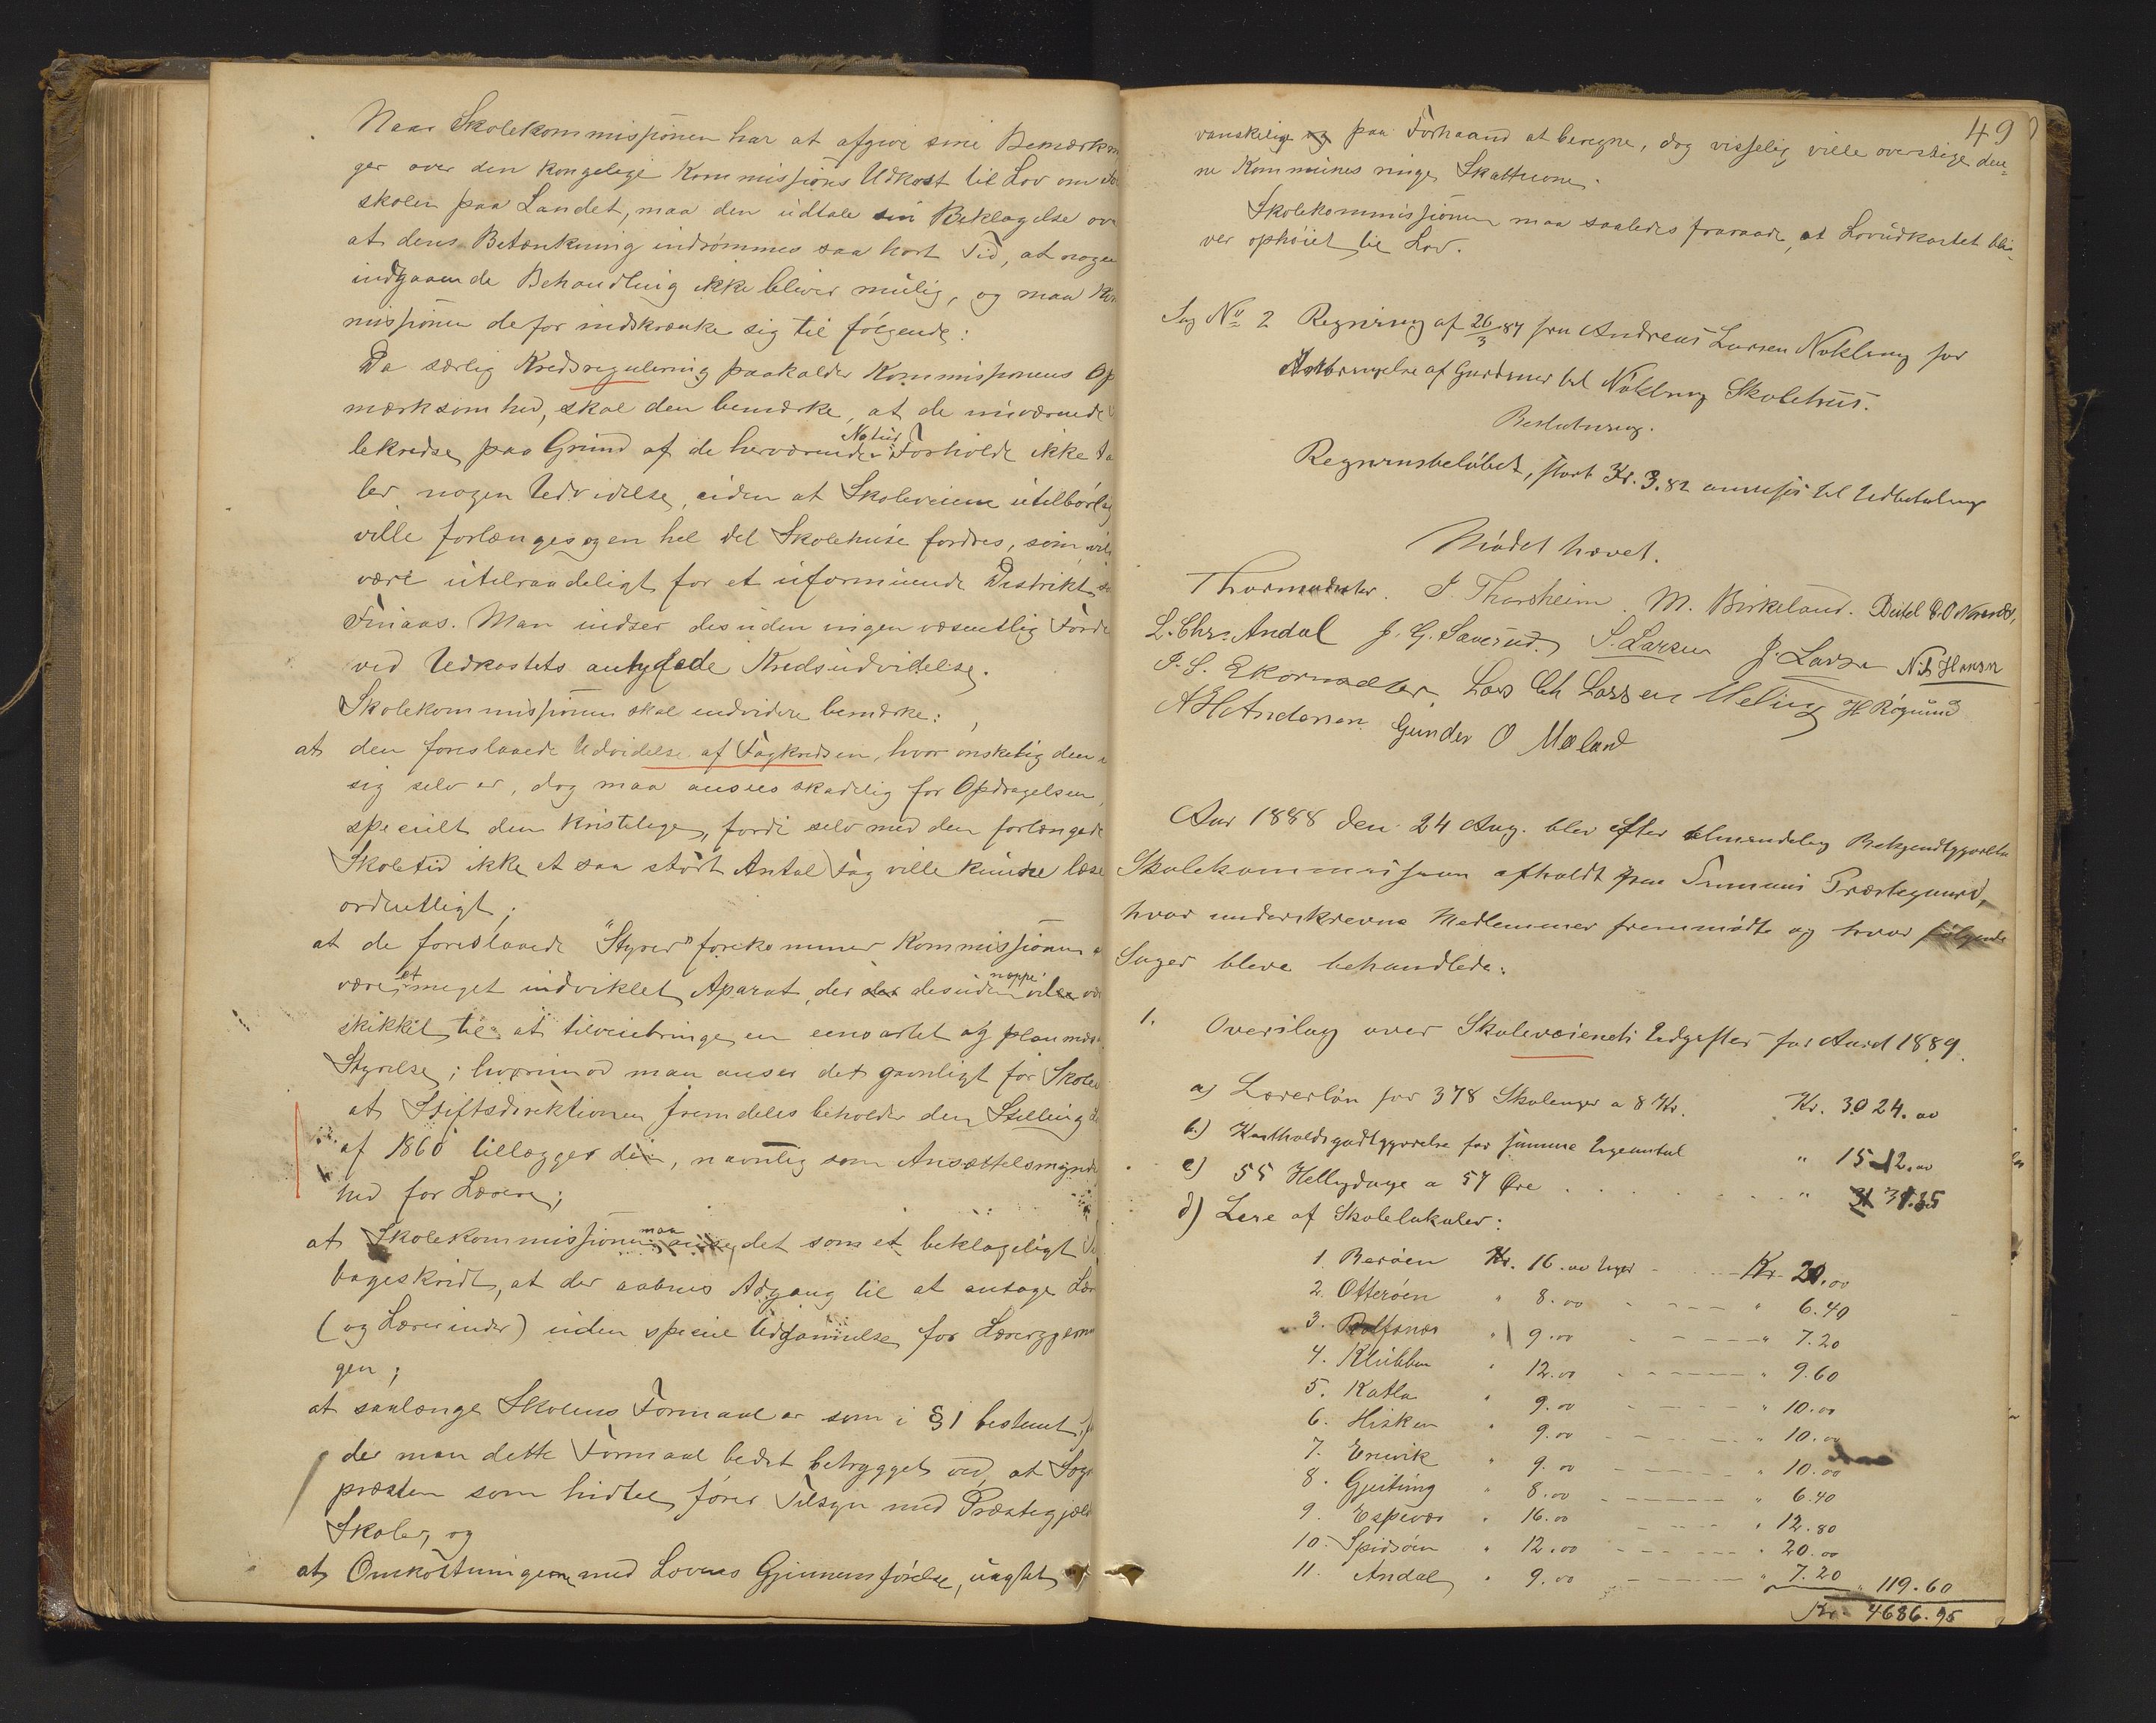 Naar Skolekommissionen har at afgive sine Bemærkn
ger over den kongelige Kommissions Udkast til Lov om
skolen paa Landet, maa den udtale sin Beklagelse ov
at dens Betænkning indrømmes saa kort Tid, at nogen
indgaaende Behandling ikke bliver mulig, og maa Kom
missionen derfor indskrænke sig til følgende:
Da særlig Kredsregulering paakalder Kommissionens Op
mærksomhed, skal den bemærke, at de nuværende
lekredse paa Grund af de herværende Natur Forholde ikke ta
ler nogen Udvidelse, uden at Skoleveiene utilbørlig
ville forlænges og en hel Del Skolehuse fordres, som vil
være utilraadeligt for et uformuende Distrikt
Finaas. Man indser desuden ingen væsentlig Forde
ved Udkastets antydede Kredsudvidelse.
Skolekommissionen skal endvidere bemærke:
at den foreslaaede Udvidelse af Fagkredsen, hvor ønskelig den i
sig selv er, dog maa ansees skadelig for Opdragelsen,
specielt den kristelige, fordi selv med den forlængede
Skoletid ikke et saa stort Antal Fag ville kunne læse
ordentligt;
at de foreslaaede "Styrer" forekommer Kommissionen a
være et meget indviklet Aparat, der desuden neppe vil væ
skikket til at tilveiebringe en eensartet og planmæs
Styrelse; hvorimod man anser det gavnligt for Skolen
at Stiftsdirektionen fremdeles beholder den Stilling
af 1860 tillægger den, navnlig som Ansættelsesmynd
hed for Lærere;
at Skolekommissionen maa anse det som et beklageligt
bageskridt, at der aabnes Adgang til at antage Lær
(og Lærerinder) uden speciel Uddannelse for Lærergjern
gen;
at saalænge Skolens Formaal er som i § 1 bestemt,
der man dette Formaal bedst betrygget ved, at Sogne
præsten som hidtil fører Tilsyn med Præstegjæld
Skoler, og
at Omkostningerne med Lovens Gjennemførelse, uagtet
49
vanskelige paa Forhaand at beregne, dog visselig ville overstige den-
ne Kommunes ringe Skatteevne.
Skolekommissionen maa saaledes fraraade, at Lovudkastet bli-
ver ophøiet til Lov.
Sag No 2 Regning af 26/3 87 fra Andreas Larsen Nøkling for
Anbringelse af Gardiner til Nøkling Skolehus.
Beslutning.
Regningsbeløbet, stort Kr. 3.82 anvises til Udbetaling
Mødet hævet.
Thormodsæter. J. Thorsheim. M. Birkeland.
L. Chr. Andal J. G. Saverud. S. Larsen J. Larsen N. Hansen
Lars Ch Larssen Meling H Røgnund
A H Andersen Gunder O Mæland
Aar 1888 den 24 Aug. blev efter almindelig Bekjendtgjørelse
Skolekommission afholdt paa Finnaas Præstegaard,
hvor underskrevne Medlemmer fremmødte og hvor følgende
Sager bleve behandlede:
1. Overslag over Skolevæsenets Udgifter for Aaret 1889.
a) Lærerløn for 378 Skoleuger a 8 Kr. Kr. 3024.00
b.) Kostholdsgodtgjørelse for samme Ugeantal " 1512.00
c) 55 Helligdage a 57 Øre " 31.35
d) Leie af Skolelokaler:
1. Berøen Kr. 16.00 Uger Kr. 20.00
2. Otterøen " 8.00 " 6.40
3. Rolfsnes " 9.00 " 7.20
4. Klubben " 12.00 " 9.60
5. Katla " 9.00 " 10.00
6. Hisken " 9.00 " 10.00
7. Enevik " 9.00 " 10.00
8. Gjeitung " 8.00 " 6.40
9. Espevær " 16.00 " 12.80
10. Spidsøen " 12.00 " 20.00
11. Andal " 9.00 " 7.20 " 119.60
Kr. 4686.95